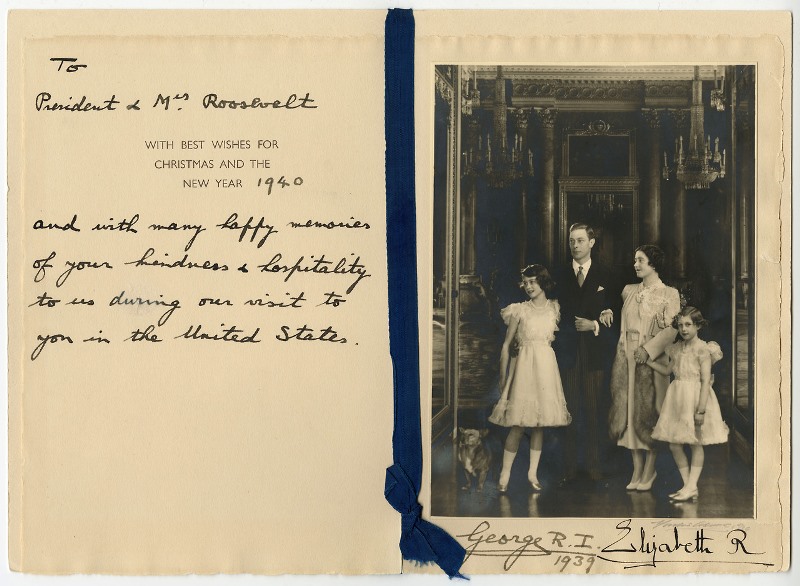 To
President & Mrs Roosevelt
WITH BEST WISHES FOR
CHRISTMAS AND THE
NEW YEAR 1940
and with many happy memories
of your kindness & hospitality
to us during our visit to
you in the United States.
George R.I. Elizabeth R
1939